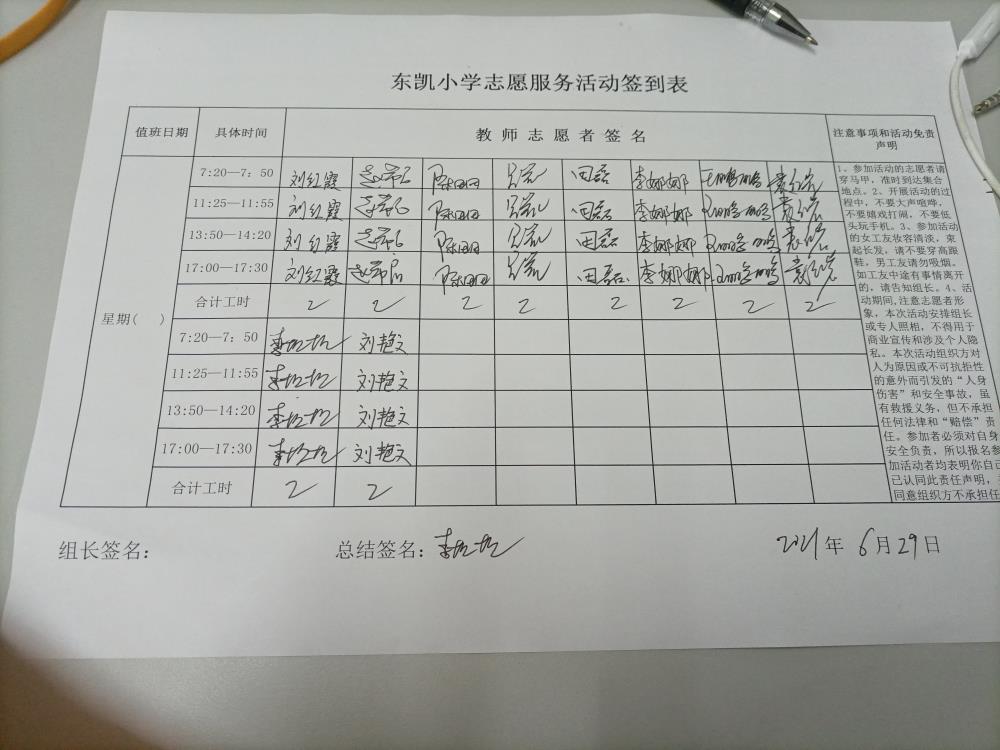 东凯小学志愿服务活动签到表
值班日期 具体时间 教师志愿者签名 注意事项和活动免责声明
星期( )
7:20—7：50 刘红霞 田磊 李娜娜
11:25—11:55 刘红霞 田磊 李娜娜
13:50—14:20 刘红霞 田磊 李娜娜
17:00—17:30 刘红霞 田磊 李娜娜
合计工时 2 2 2 2 2 2 2 2
7:20—7：50 刘艳文
11:25—11:55 刘艳文
13:50—14:20 刘艳文
17:00—17:30 刘艳文
合计工时 2 2
1、参加活动的志愿者请
穿马甲，准时到达集合
地点。2、开展活动的过
程中，不要大声喧哗，
不要嬉戏打闹，不要低
头玩手机。3、参加活动
的女工友妆容清淡，束
起长发，请不要穿高跟
鞋，男工友请勿吸烟。
如工友中途有事情离开
的，请告知组长。4、活
动期间,注意志愿者形
象，本次活动安排组长
或专人照相，不得用于
商业宣传和涉及个人隐
私。本次活动组织方对
人为原因或不可抗拒性
的意外而引发的“人身
伤害”和安全事故，虽
有救援义务，但不承担
任何法律和“赔偿”责
任。参加者必须对自身
安全负责，所以报名参
加活动者均表明你自己
已认同此责任声明，
同意组织方不承担任
组长签名： 总结签名： 2021年 6月29日